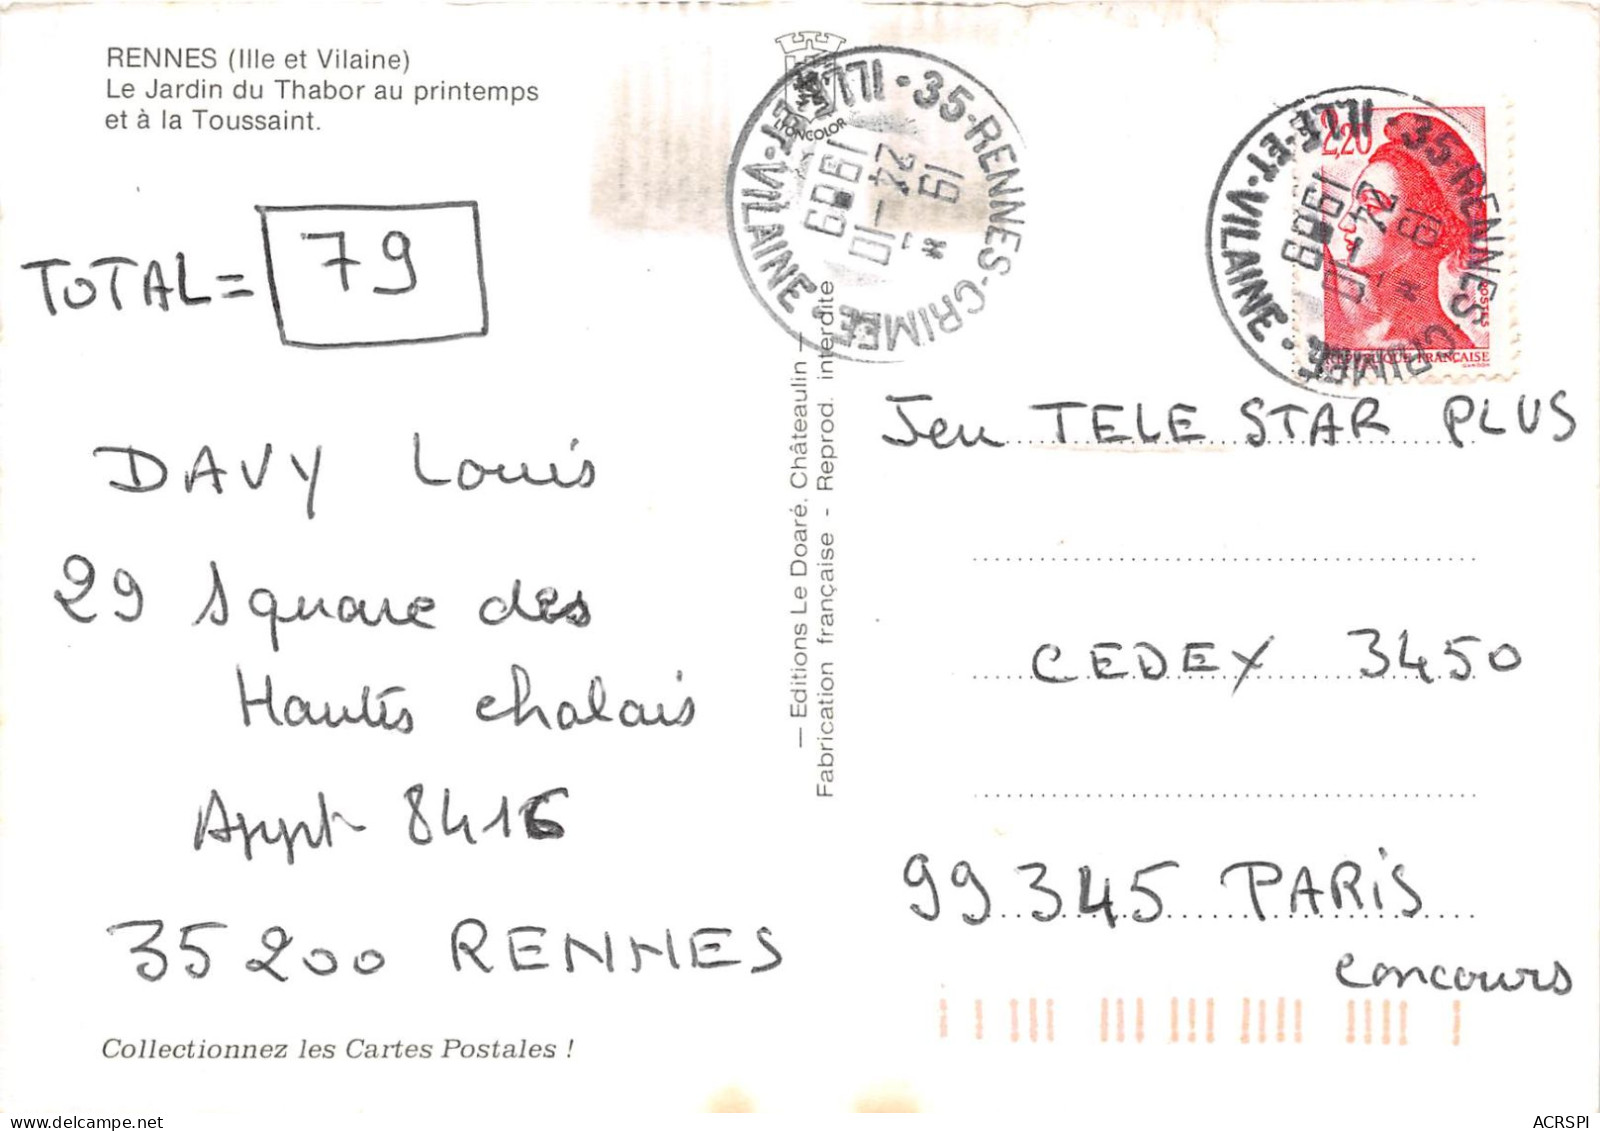 RENNES (Ille et Vilaine)
Le Jardin du Thabor au printemps
et à la Toussaint.
TOTAL = 79
DAVY Louis
29 Square des
Hautes chalais
Appt 8416
35200 RENNES
Collectionnez les Cartes Postales !
— Editions Le Doaré. Châteaulin —
Fabrication française - Reprod. interdite
LYONCOLOR
35-RENNES-CRIMEE
ILLE-ET-VILAINE
19 H
24-10
1989
2,20
POSTES
REPUBLIQUE FRANÇAISE
GANDON
35-RENNES-CRIMEE
ILLE-ET-VILAINE
19 H
24-10
1989
Jeu TELE STAR PLUS
CEDEX 3450
99345 PARIS
concours
ACRSPI